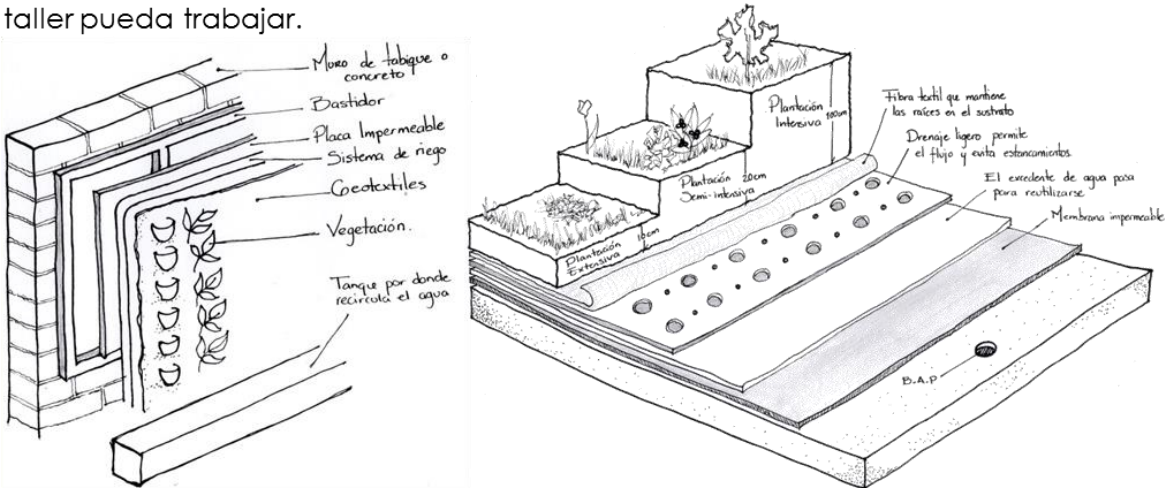 taller pueda trabajar.
Muro de tabique o
concreto
Bastidor
Placa Impermeable
Sistema de riego
Geotextiles
Vegetación.
Tanque por donde
recircula el agua
Plantación
Intensiva 100cm
Plantación 20cm
Semi-intensiva
Plantación 10cm
Extensiva
Fibra textil que mantiene
las raíces en el sustrato
Drenaje ligero permite
el flujo y evita estancamientos
El excedente de agua pasa
para reutilizarse
Membrana impermeable
B.A.P